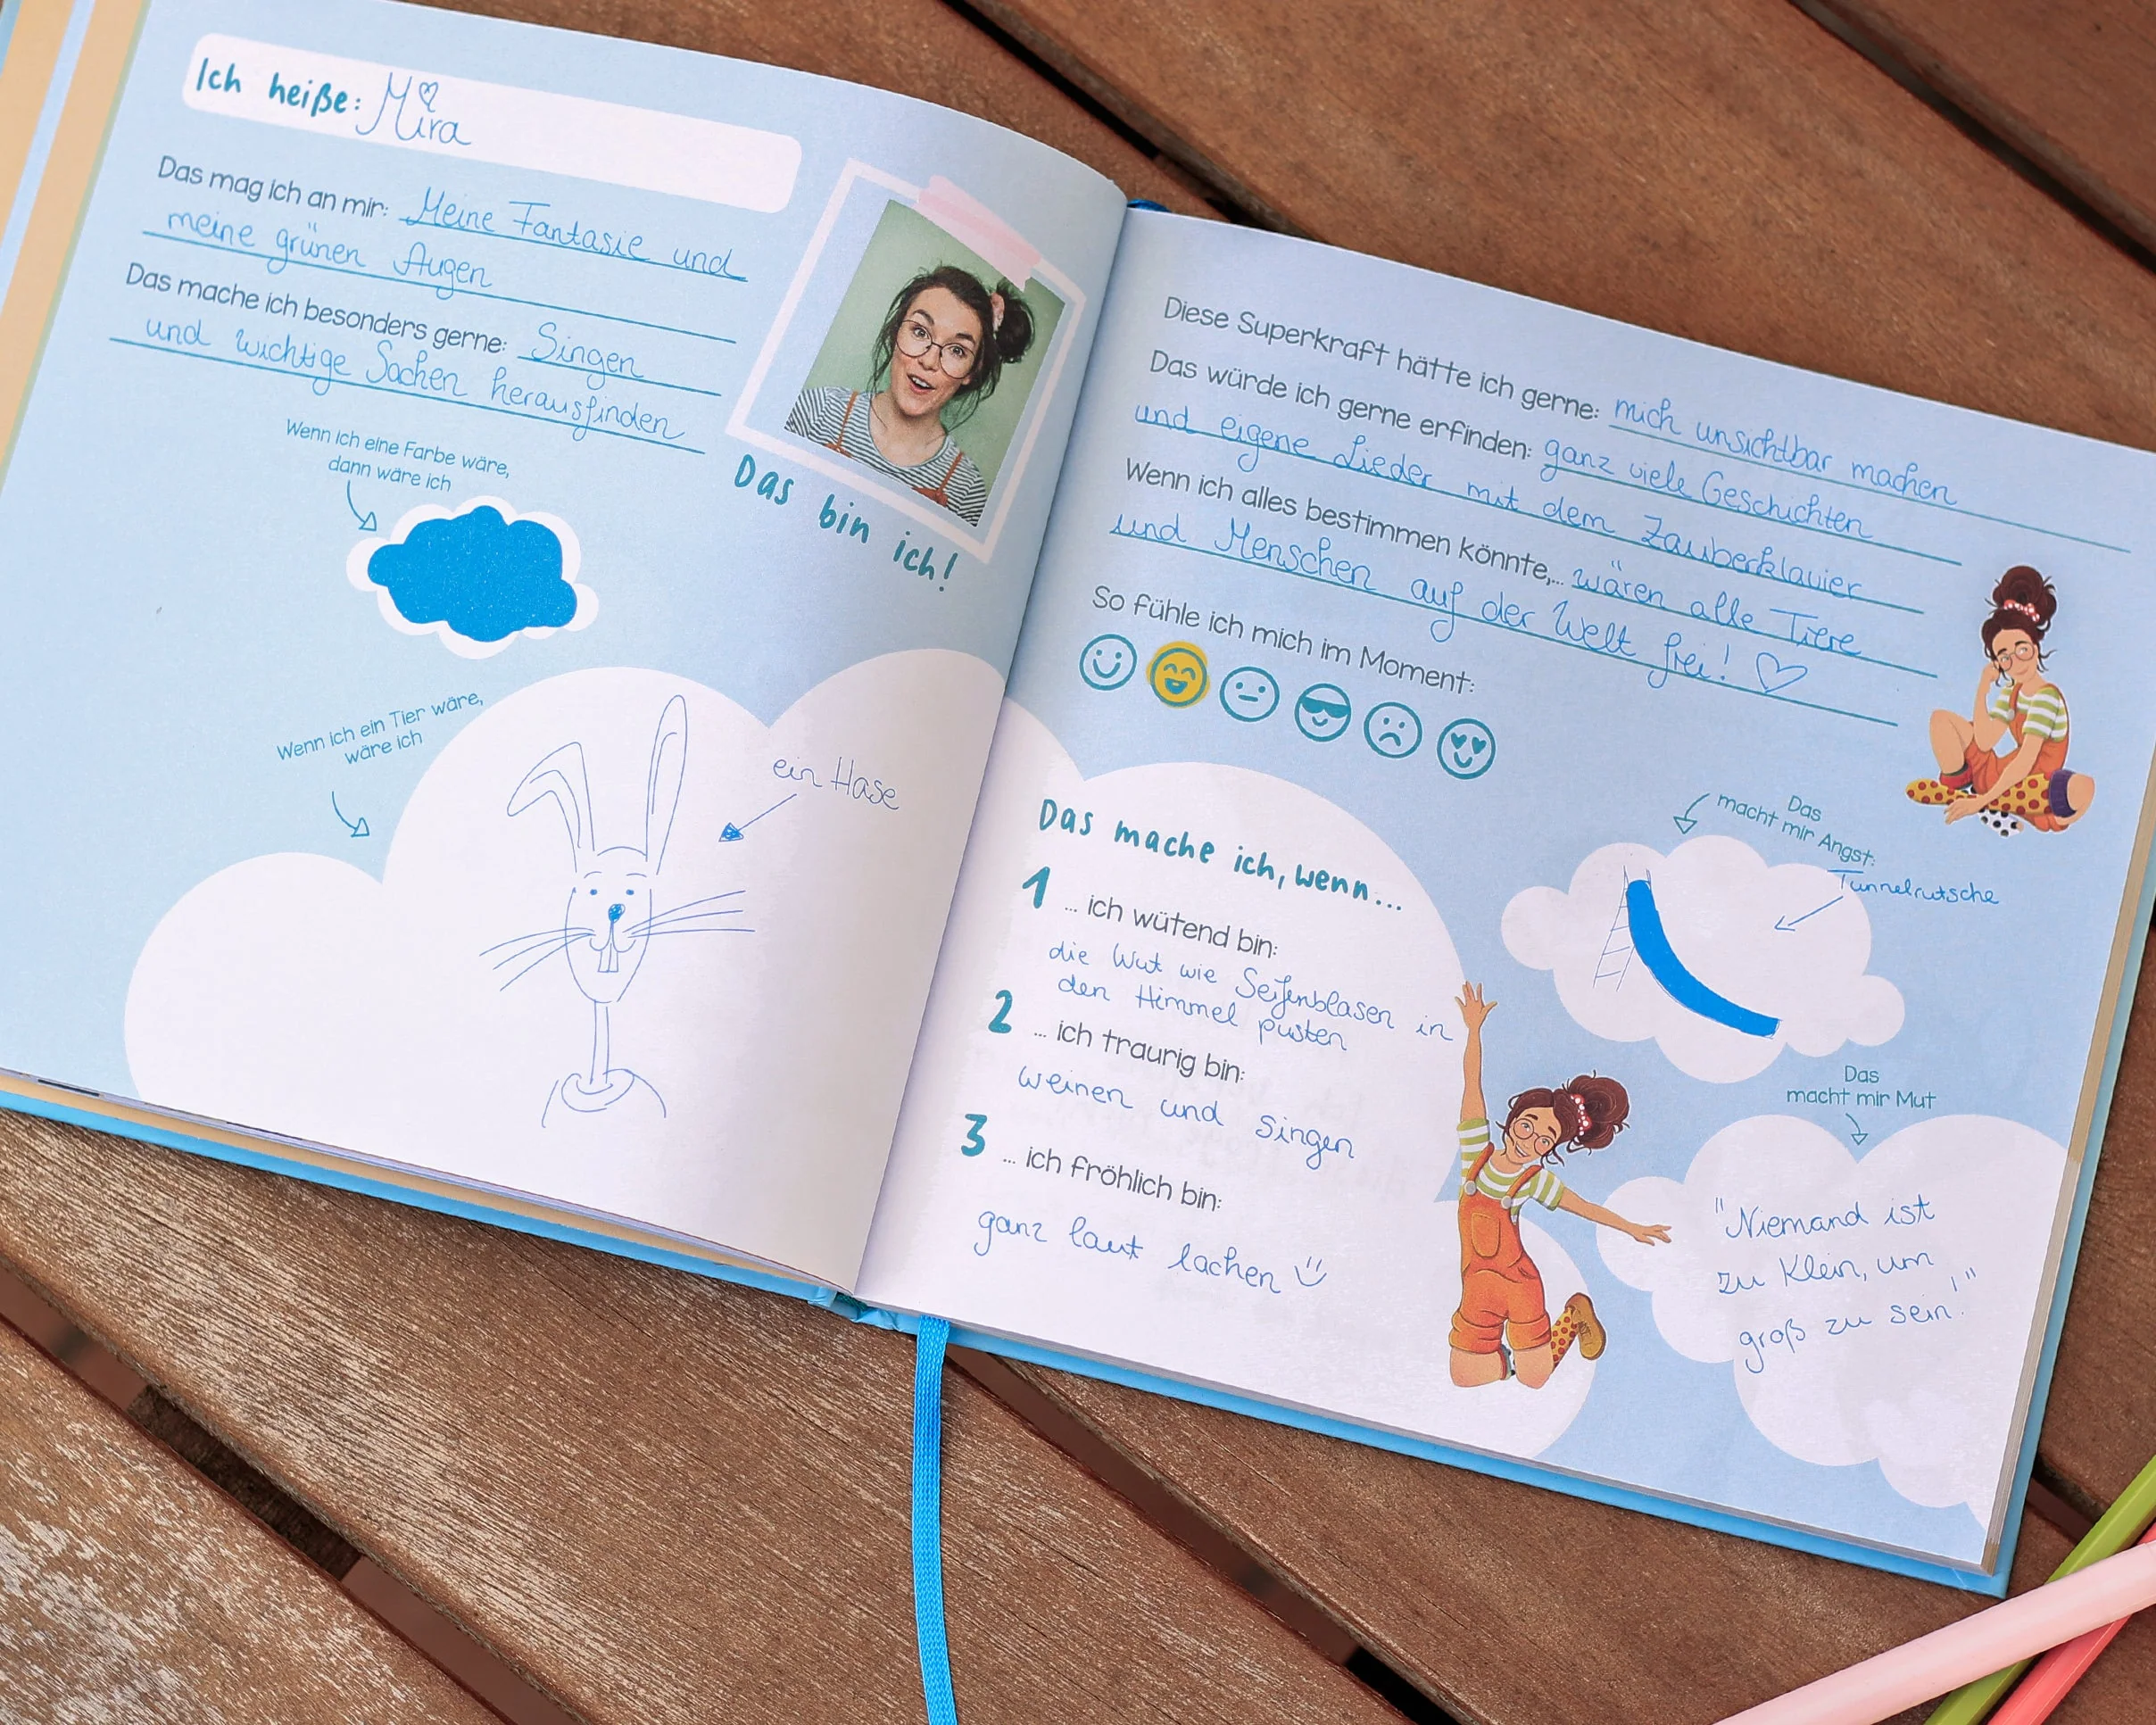 Ich heiße: Mira
Das mag ich an mir: Meine Fantasie und
meine grünen Augen
Das mache ich besonders gerne: Singen
und wichtige Sachen herausfinden
Wenn ich eine Farbe wäre,
dann wäre ich
Das bin ich!
Wenn ich ein Tier wäre,
wäre ich
ein Hase
Diese Superkraft hätte ich gerne: mich unsichtbar machen
Das würde ich gerne erfinden: ganz viele Geschichten
und eigene Lieder mit dem Zauberklavier
Wenn ich alles bestimmen könnte,... wären alle Tiere
und Menschen auf der Welt frei! ♡
So fühle ich mich im Moment:
Das mache ich, wenn...
1 ... ich wütend bin:
die Wut wie Seifenblasen in
den Himmel pusten
2 ... ich traurig bin:
weinen und singen
3 ... ich fröhlich bin:
ganz laut lachen
Das
macht mir Angst:
Tunnelrutsche
Das
macht mir Mut
"Niemand ist
zu klein, um
groß zu sein!"